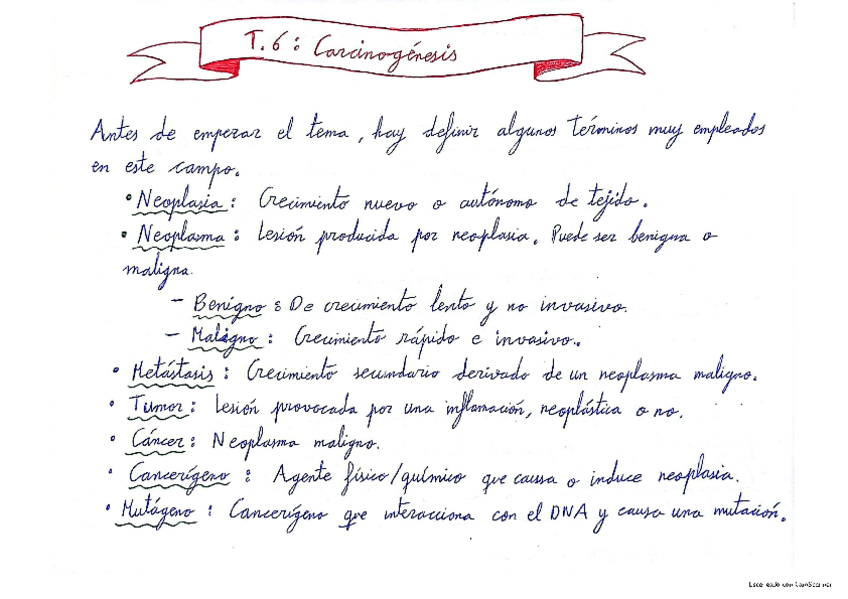 T.6: Carcinogénesis
Antes de empezar el tema, hay definir algunos términos muy empleados
en este campo.
• Neoplasia: Crecimiento nuevo o autónomo de tejido.
• Neoplasma: Lesión producida por neoplasia. Puede ser benigna o
maligna.
- Benigno: De crecimiento lento y no invasivo.
- Maligno: Crecimiento rápido e invasivo.
• Metástasis: Crecimiento secundario derivado de un neoplasma maligno.
• Tumor: Lesión provocada por una inflamación, neoplástica o no.
• Cáncer: Neoplasma maligno.
• Cancerígeno: Agente físico/químico que causa o induce neoplasia.
• Mutágeno: Cancerígeno que interacciona con el DNA y causa una mutación.
Escaneado con CamScanner